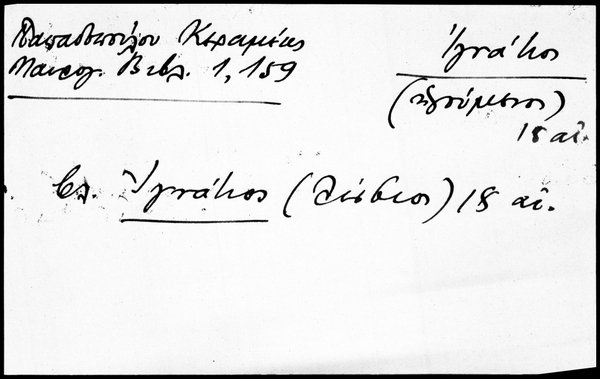 Παπαδοπούλου Κεραμέως
Μαυρογ. Βιβλ. 1, 159
Ἰγνάτιος
(ἡγούμενος)
18 αἰ.
βλ. Ἰγνάτιος (Λέσβιος) 18 αἰ.